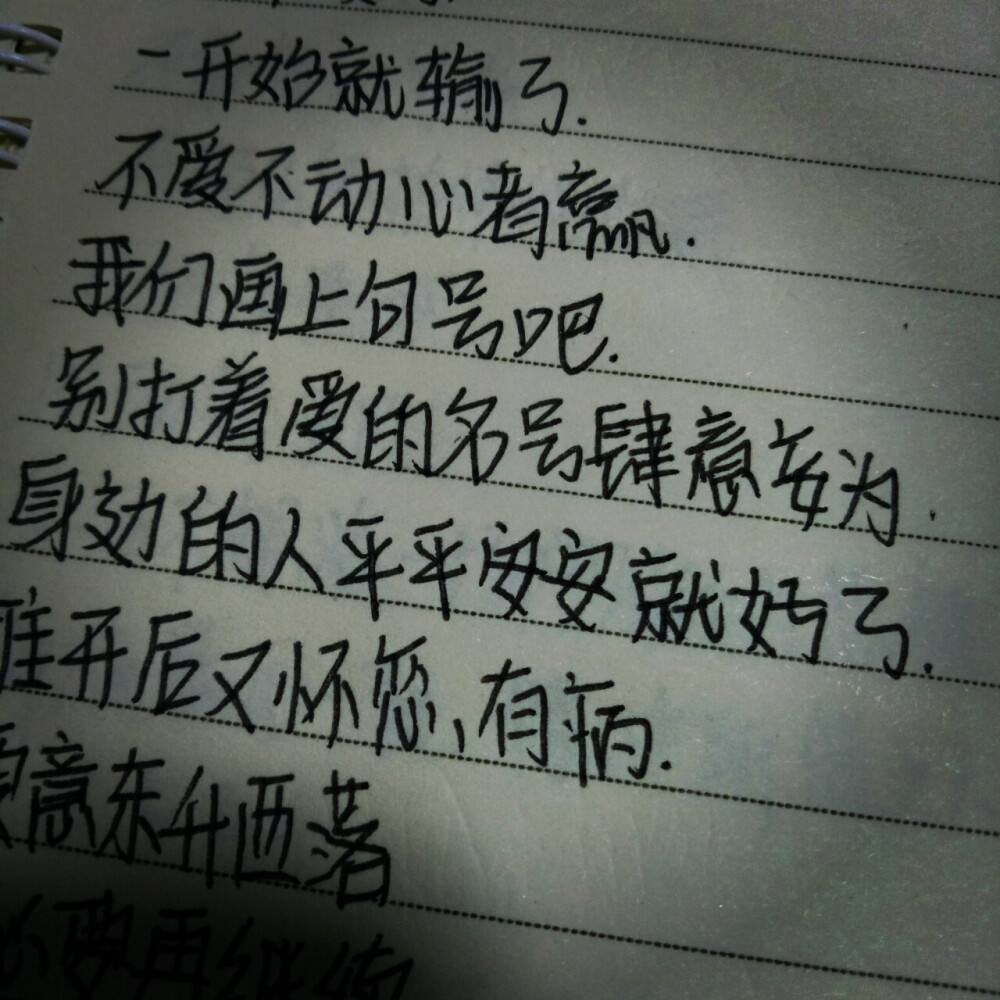 一开始就输了.
不爱不动心者赢.
我们画上句号吧.
别打着爱的名号肆意妄为.
身边的人平平安安就好了.
推开后又怀恋、有病.
意东升西落
要再继续